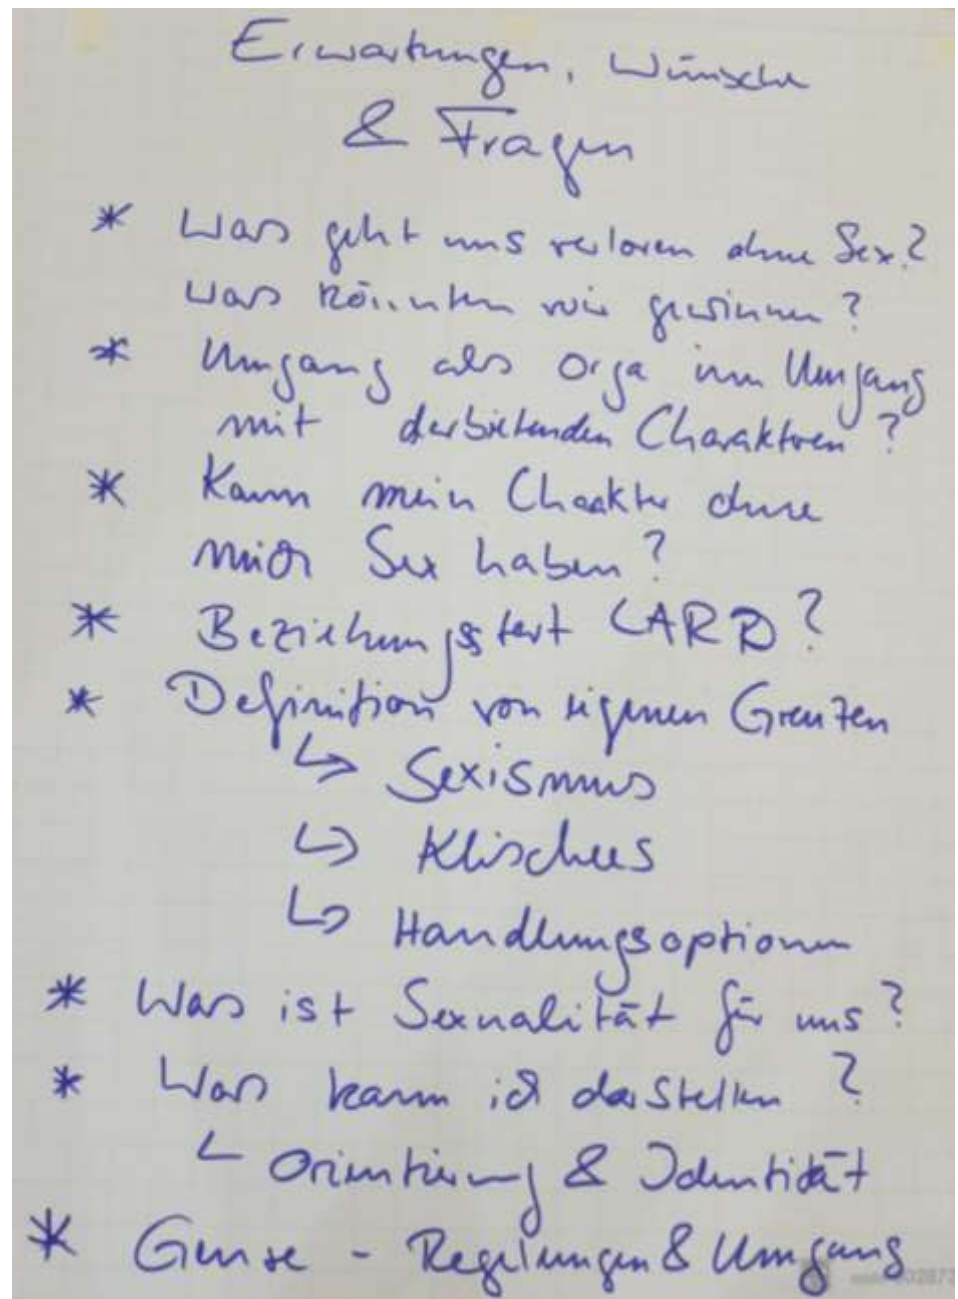 Erwartungen, Wünsche
& Fragen
* Was geht uns verloren ohne Sex?
Was könnten wir gewinnen?
* Umgang als Orga im Umgang
mit derbietenden Charakteren?
* Kann mein Charakter ohne
mich Sex haben?
* Beziehungstest LARP?
* Definition von eigenen Grenzen
↳ Sexismus
↳ Klischees
↳ Handlungsoptionen
* Was ist Sexualität für uns?
* Was kann ich darstellen?
↳ Orientierung & Identität
* Genre - Regelungen & Umgang